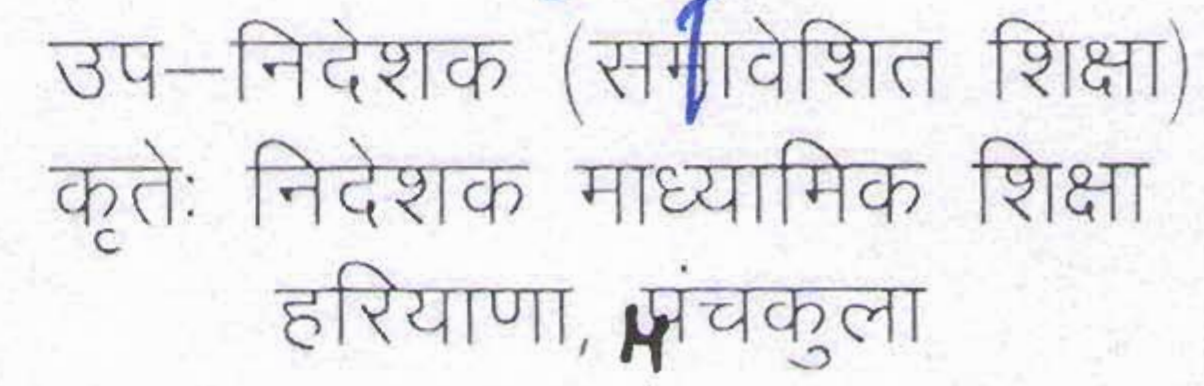 उप–निदेशक (समावेशित शिक्षा)
कृतेः निदेशक माध्यामिक शिक्षा
हरियाणा, पंचकुला